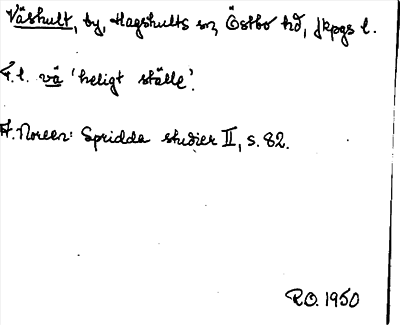 Väshult, by, Hagshults sn, Östbo hd, Jkpgs l.
F.l. vä 'heligt ställe'.
A. Noreen: Spridda studier II, s. 82.
R.O. 1950